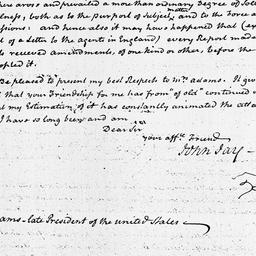 here arose and prevailed a more than ordinary Degree of Soli
ness, both as to the purport of Subject matter and to the Force a
ssions: and hence also it may have happened that (ex
of a Letter to the agents in England) every Report made
to received amendments, of one kind or other, before the
opted it.
Be pleased to present my best Respects to Mrs. Adams. It giv
that your Friendship for me has from "of old" continued
my Estimation of it has constantly animated the atta
I have so long been and am
Dear Sir
your affte. Friend
John Jay
ams late President of the united States